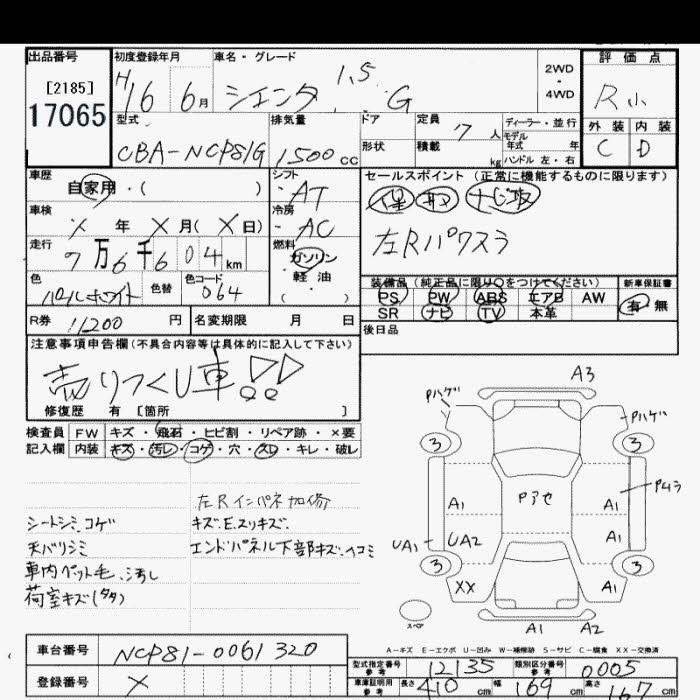 出品番号
[2185]
17065
初度登録年月
H16 6月
車名・グレード
シエンタ 1.5 G
2WD
・
4WD
評価点
R小
外装 内装
C D
型式
CBA-NCP81G
排気量
1500cc
ドア
形状
定員 7人
積載 kg
ディーラー・並行
モデル
年式 年
ハンドル 左・右
車歴
自家用・( )
シフト
AT
セールスポイント (正常に機能するものに限ります)
保 取 ナビ取
左Rパワスラ
車検
X年 X月(X日)
冷房
AC
走行
7万6千604km
燃料
ガソリン
・
軽油
( )
色
パールホワイト
色替
色コード
064
装備品 (純正品に限り○をつけてください)
PS PW ABS エアB AW
SR ナビ TV 本革
新車保証書
有 無
R券 11200円
名変期限 月 日
後日品
注意事項申告欄(不具合内容等は具体的に記入して下さい)
売りつくし車!!
修復歴 有 [箇所 ]
検査員 FW キズ・飛石・ヒビ割・リペア跡・×要
記入欄 内装 キズ・汚レ・コゲ・穴・スレ・キレ・破レ
左Rインパネ加修
シートシミ、コゲ
キズ.E.スリキズ.
天バリシミ
エンドパネル下部キズ、ヘコミ
車内ペット毛、汚れ
荷室キズ(タタ)
A3
Pハゲ
Pハゲ
3
3
Pアセ
Pムラ
A1
A1
UA1
UA2
A1
3
3
XX
A1
スペア
A1
A2
A-キズ E-エクボ U-凹み W-補修跡 S-サビ C-腐食 XX-交換済
車台番号 NCP81-0061320
登録番号 X
型式指定番号
参考
12135
類別区分番号
参考
0005
車庫証明用
参考
長さ 410cm
幅 169cm
高さ 167cm